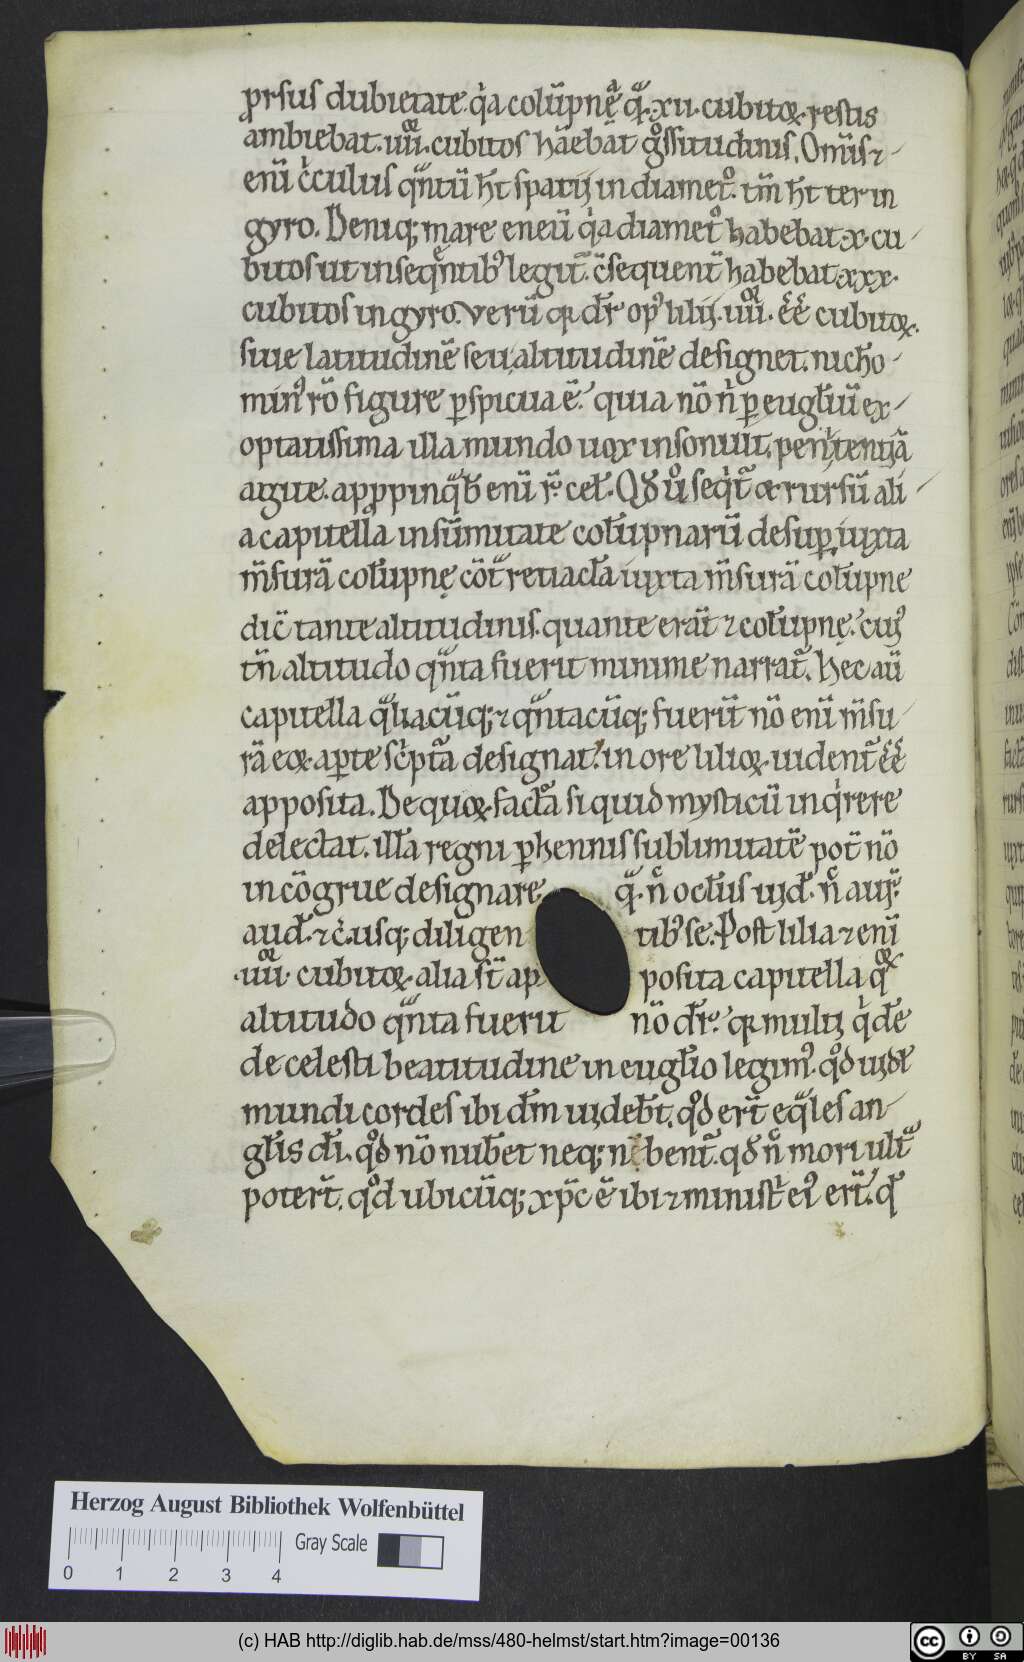 prsus dubietate. qͥa colūpnę qͣ. xii. cubitoꝝ. restis
ambiebat. iiii. cubitos haēbāt gͦssitudinis. Om̄is ⁊
enī cͥculus qn̄tū h̄t spatij in diametͦ. tm̄ h̄t ter in
gyro. Deniq; mare eneū qͥa diametͦ habebat. x. cu
bitos ut in seqn̄tibꝰ legit̄. c̄sequent̄ habebat. xxx.
cubitos in gyro. Verū qꝛ dr̄ opꝰ lilij. iiii. ee᷃ cubitoꝝ.
siue latitudinē seu altitudinē designet. nich̄o
minꝰ rō figure ꝑspicua ē. quia nō nͥ ꝑ eugl̄iū ex
optatissima illa mundo uox insonuit. penͥtentiā
agite. appropinqͣb̄ enī r̄. cel̄. Qđ uͦ seqͥt᷃ & rursū ali
a capitella in sūmitate col̄upnarū desuꝑ iuxta
m̄surā col̄upnę cōtͣ retiacl̄a iuxta m̄surā col̄upne
dic̄ tante altitudinis. quante erāt ⁊ col̄upnę. cuiꝰ
tn̄ altitudo qn̄ta fuerit minime narrat᷃. Hec aū
capitella qͣliacūq; ⁊ qn̄tacūq; fuerīt nō enī m̄su
rā eoꝝ. aꝑte scͥpta᷃ designat. in ore lilioꝝ. uident᷃ ee᷃
apposita. De quoꝝ. factͣa si quid mysticū inqͥrere
delectat. ill̄a regni ꝑhennis sublimitatē pot̄ nō
incōgrue designare. qͣ. nͨ ocl̄us uid̄. nͨ aur̄.
aud̄. ⁊ cͥ. usq; diligen tibꝰ se. Post lilia ⁊ enī
iiii. cubitoꝝ. alia st̄ ap posita capitella qͦꝝ
altitudo qn̄ta fuerit nō dr̄. qꝛ multi qͥde᷃
de celesti beatitudine in eugl̄io legimꝰ. qͦd uidel̄
mundi cordes ibi dm̄ uideb̄t. qͦd er̄t eqͣles an
gl̄is di᷃. qͦd nō nub̄et neq; nubent᷃. qđ nͨ mori ultͣ
poter̄t. qͦd ubicūq; xp̄c ē ibi ⁊ minist̄ eiꝰ er̄t. qͦ
Herzog August Bibliothek Wolfenbüttel
Gray Scale
0 1 2 3 4
(c) HAB http://diglib.hab.de/mss/480-helmst/start.htm?image=00136
cc BY SA